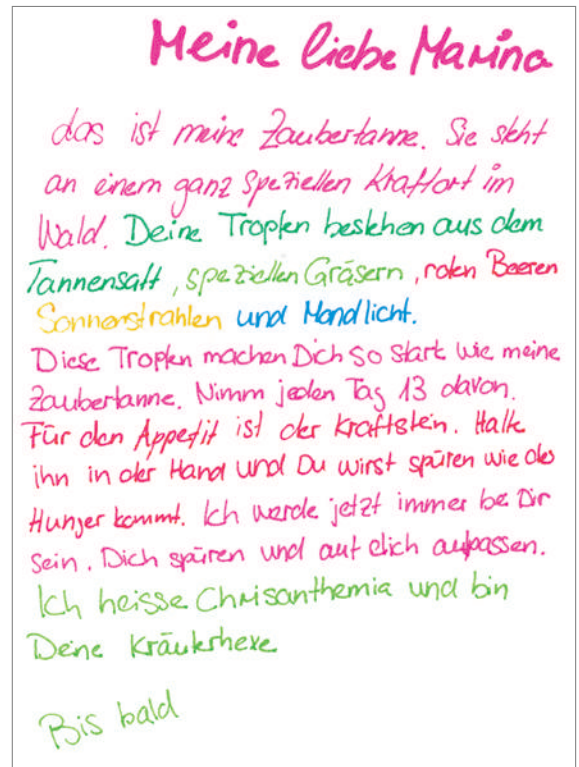 Meine liebe Marina
das ist meine Zaubertanne. Sie steht
an einem ganz speziellen Kraftort im
Wald. Deine Tropfen bestehen aus dem
Tannensaft, speziellen Gräsern, roten Beeren
Sonnenstrahlen und Mondlicht.
Diese Tropfen machen Dich so stark wie meine
Zaubertanne. Nimm jeden Tag 13 davon.
Für den Appetit ist der Kraftstein. Halte
ihn in der Hand und Du wirst spüren wie der
Hunger kommt. Ich werde jetzt immer be Dir
sein. Dich spüren und auf dich aufpassen.
Ich heisse Chrisanthemia und bin
Deine Kräuterhexe
Bis bald